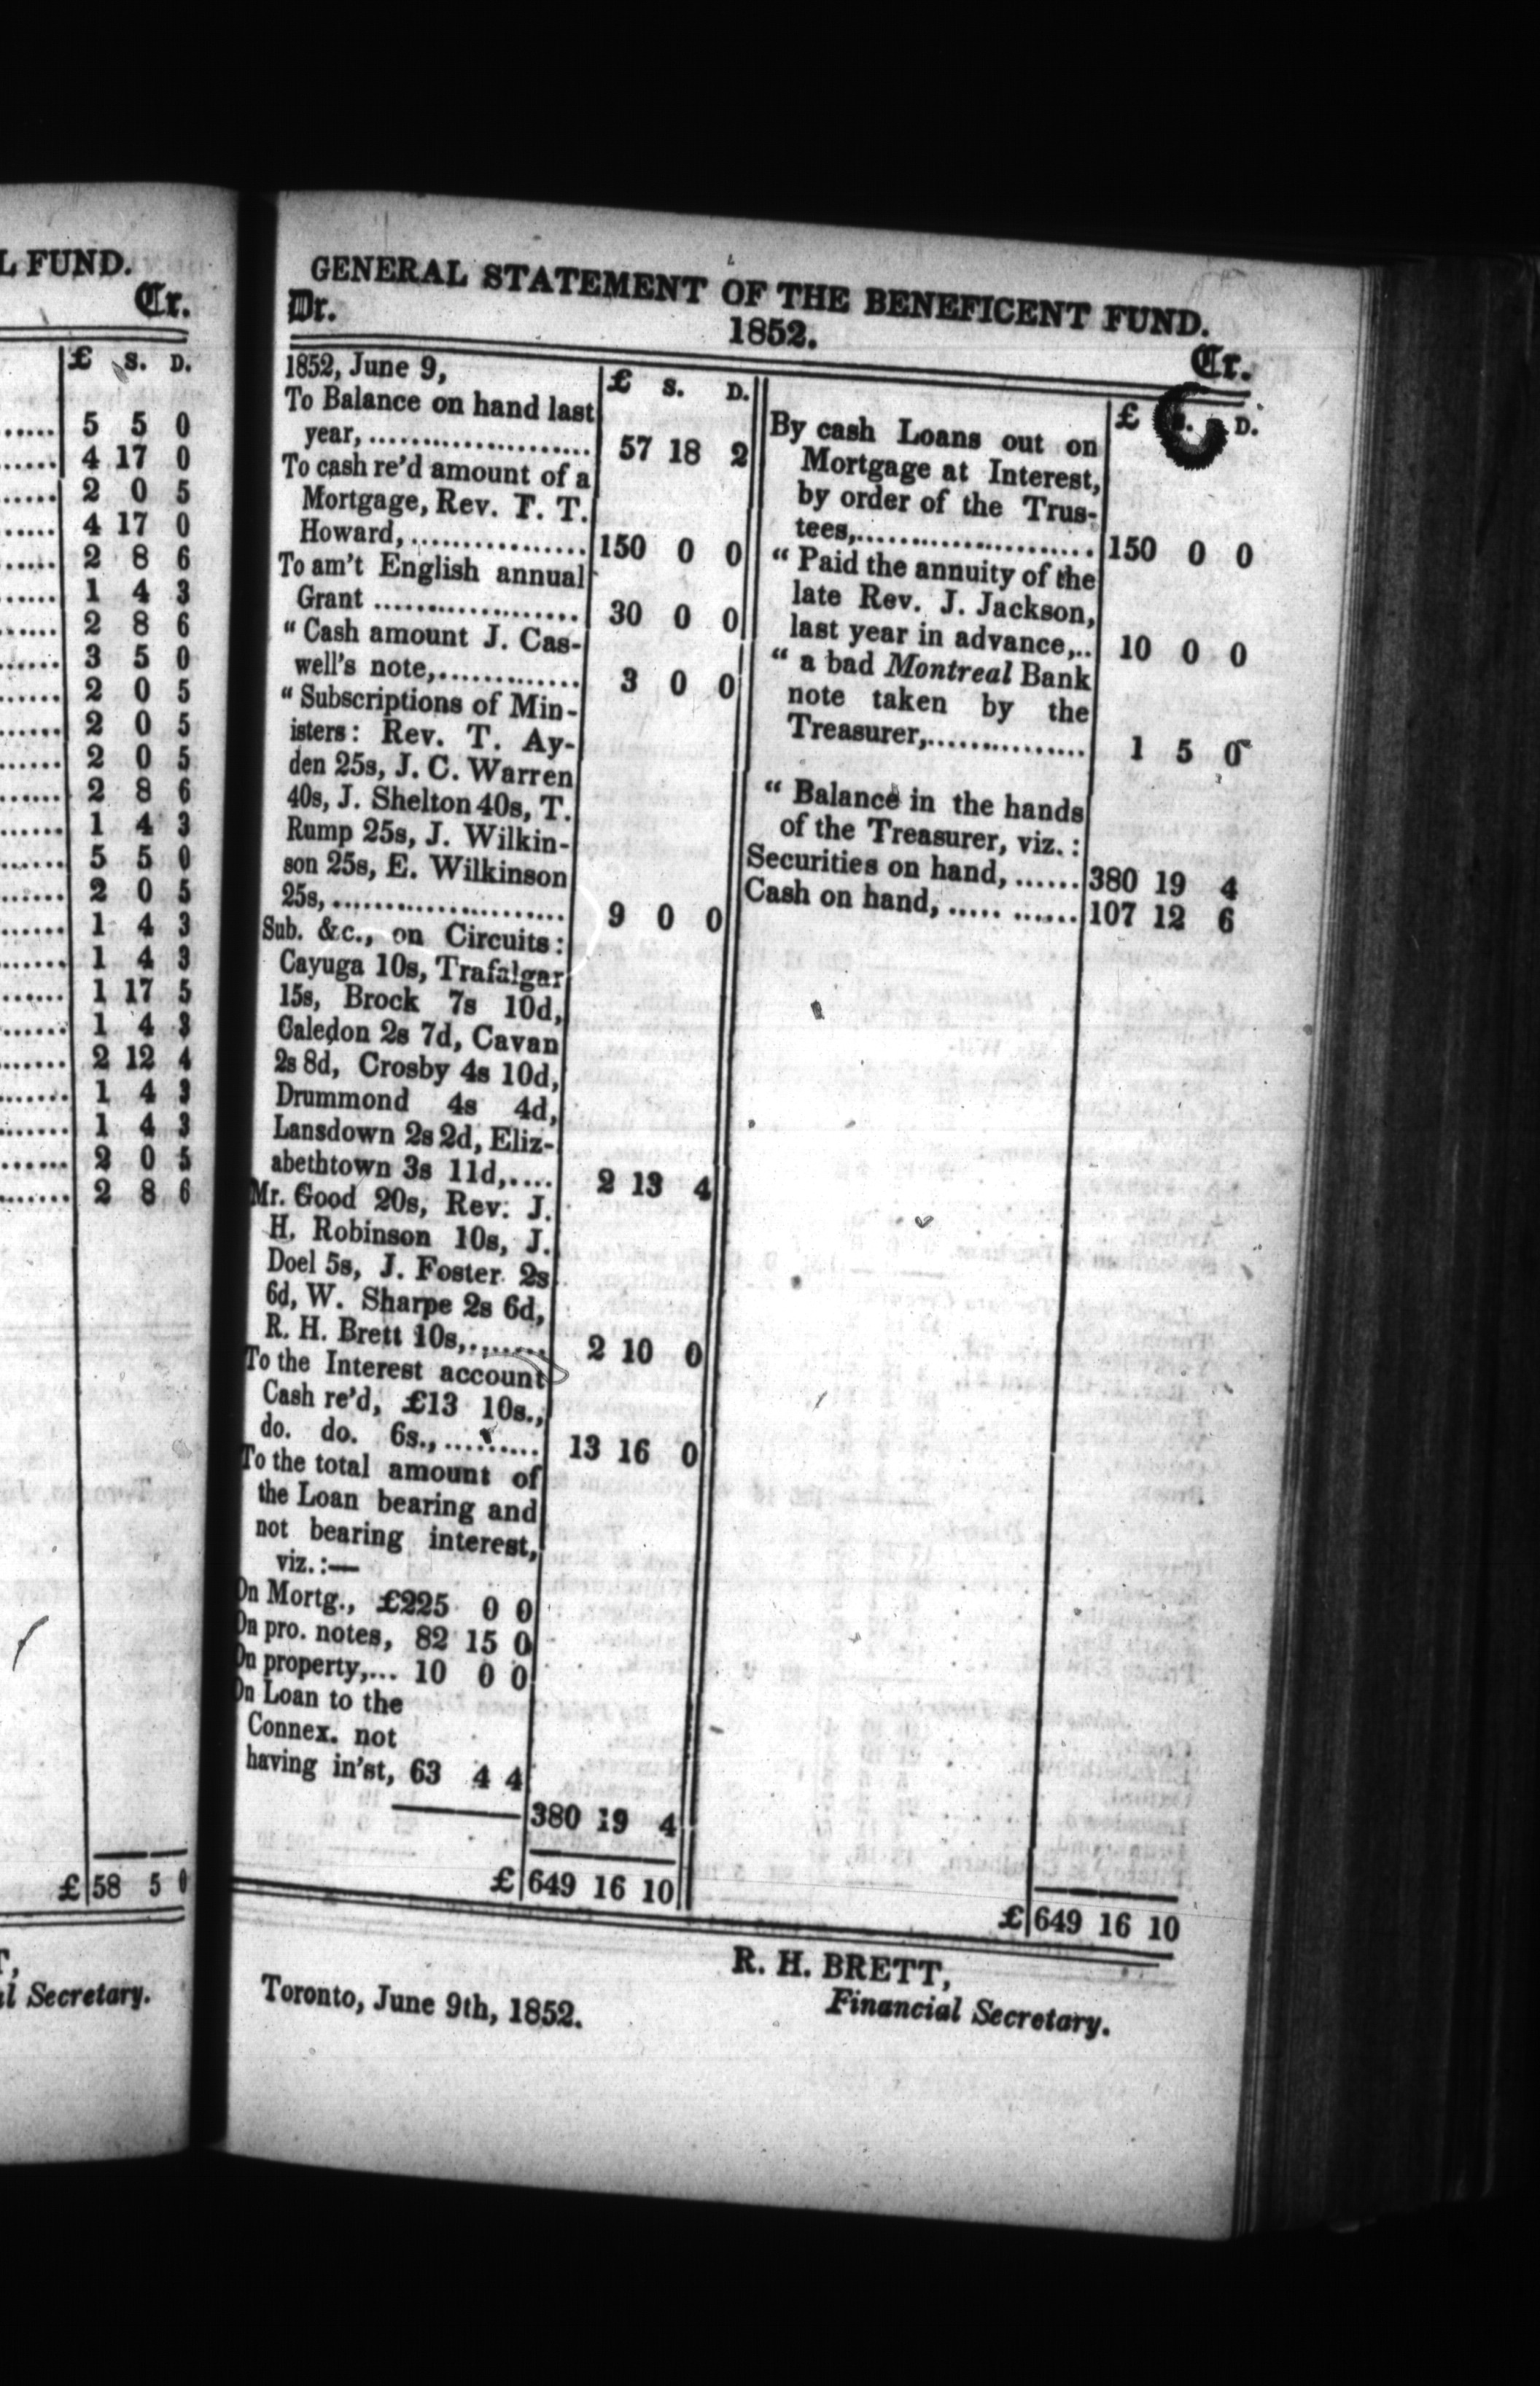 L FUND.
Cr.
£ S. D.
...... 5 5 0
...... 4 17 0
...... 2 0 5
...... 4 17 0
...... 2 8 6
...... 1 4 3
...... 2 8 6
...... 3 5 0
...... 2 0 5
...... 2 0 5
...... 2 0 5
...... 2 8 6
...... 1 4 3
...... 5 5 0
...... 2 0 5
...... 1 4 3
...... 1 4 3
...... 1 17 5
...... 1 4 3
...... 2 12 4
...... 1 4 3
...... 1 4 3
...... 2 0 5
...... 2 8 6
£ 58 5 0
T,
al Secretary.
GENERAL STATEMENT OF THE BENEFICENT FUND.
Dr. 1852. Cr.
1852, June 9, £ S. D.
To Balance on hand last
year,..................... 57 18 2
To cash re'd amount of a
Mortgage, Rev. F. T.
Howard,................ 150 0 0
To am't English annual
Grant ................... 30 0 0
“ Cash amount J. Cas-
well's note,............. 3 0 0
“ Subscriptions of Min-
isters: Rev. T. Ay-
den 25s, J. C. Warren
40s, J. Shelton 40s, T.
Rump 25s, J. Wilkin-
son 25s, E. Wilkinson
25s,...................... 9 0 0
Sub. &c., on Circuits:
Cayuga 10s, Trafalgar
15s, Brock 7s 10d,
Caledon 2s 7d, Cavan
2s 8d, Crosby 4s 10d,
Drummond 4s 4d,
Lansdown 2s 2d, Eliz-
abethtown 3s 11d,.... 2 13 4
Mr. Good 20s, Rev. J.
H. Robinson 10s, J.
Doel 5s, J. Foster 2s
6d, W. Sharpe 2s 6d,
R. H. Brett 10s,........ 2 10 0
To the Interest account
Cash re'd, £13 10s.,
do. do. 6s.,......... 13 16 0
To the total amount of
the Loan bearing and
not bearing interest,
viz.:—
On Mortg., £225 0 0
On pro. notes, 82 15 0
On property,... 10 0 0
On Loan to the
Connex. not
having in'st, 63 4 4
380 19 4
£ 649 16 10
£ S. D.
By cash Loans out on
Mortgage at Interest,
by order of the Trus-
tees,...................... 150 0 0
“ Paid the annuity of the
late Rev. J. Jackson,
last year in advance,.. 10 0 0
“ a bad Montreal Bank
note taken by the
Treasurer,............... 1 5 0
“ Balance in the hands
of the Treasurer, viz.:
Securities on hand, ...... 380 19 4
Cash on hand, ..... ...... 107 12 6
£ 649 16 10
R. H. BRETT,
Financial Secretary.
Toronto, June 9th, 1852.